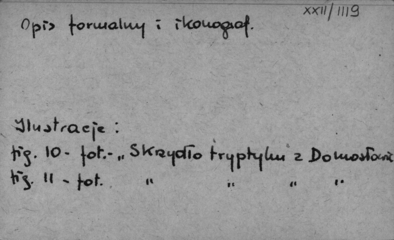 XXII/1119
Opis formalny i ikonograf.
Ilustracje:
fig. 10 - fot. - „Skrzydło tryptyku z
fig. 11 - fot. " " " "